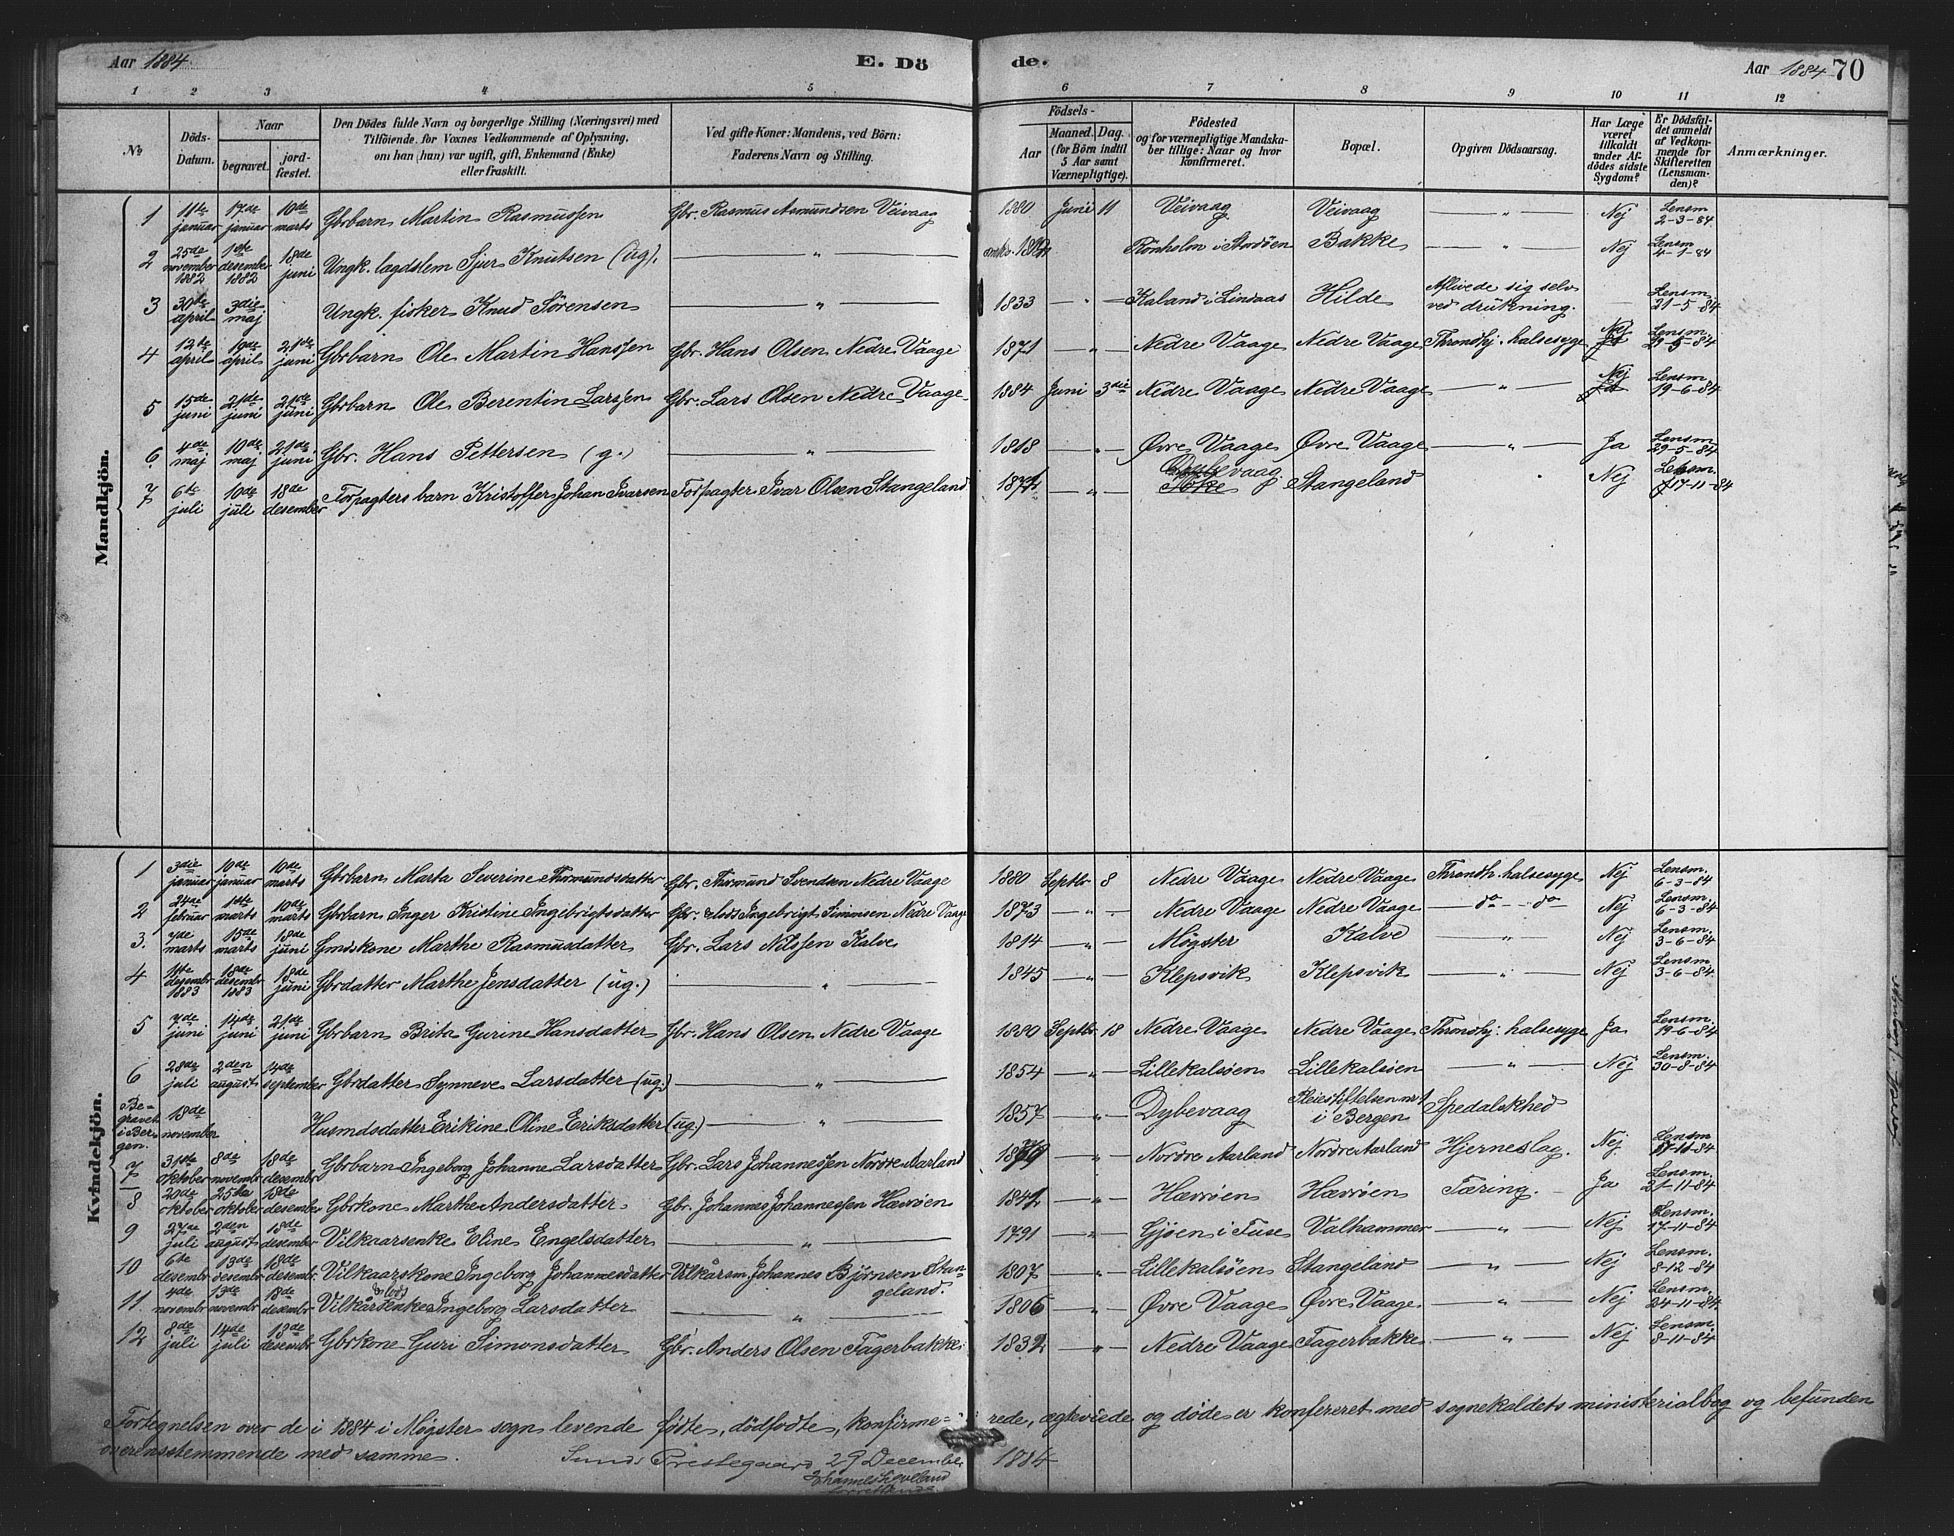 Aar 1884. E. Dö de. Aar 1884 70
1 2 3 4 5 6 7 8 9 10 11 12
No
Döds-Datum.
Naar
begravet.
jord-fæstet.
Den Dödes fulde Navn og borgerlige Stilling (Næringsvei) med
Tilföiende, for Voxnes Vedkommende af Oplysning,
om han (hun) var ugift, gift, Enkemand (Enke)
eller fraskilt.
Ved gifte Koner: Mandens, ved Börn:
Faderens Navn og Stilling.
Födsels-
Aar
Maaned. Dag.
(for Börn indtil
5 Aar samt
Værnepligtige).
Födested
og for værnepligtige Mandska-
ber tillige: Naar og hvor
konfirmeret.
Bopæl.
Opgiven Dödsaarsag.
Har Læge
været
tilkaldt
under Af-
dödes sidste
Sygdom?
Er Dödsfal-
det anmeldt
af Vedkom-
mende for
Skifteretten
(Lensman-
den)?
Anmærkninger.
Mandkjön.
1 11te januar 17de januar 10de marts Gbrbarn Martin Rasmussen Gbr. Rasmus Asmundsen Veivaag 1880 Juni 11 Veivaag Veivaag — " — Nej Lensm 2-3-84
2 25de november 1882 1ste desember 1882 18de juni Ungk. lægdslem Sjur Knutsen (ug). — " — Rönholm i Stordöen Bakke — " — Nej Lensm 4-1-84
3 30te april 3die maj Ungk. fisker Knud Sörensen — " — 1833 — " — Kaland i Lindaas Hilde Aflivede sig selv ved drukning. — Lensm. 21-5-84
4 12te april 19de april 21de juni Gbrbarn Ole Martin Hanssen Gbr. Hans Olsen Nedre Vaage 1871 — " — Nedre Vaage Nedre Vaage Throndhj. halsesyge Nej Lensm. 29-5-84
5 15de juni 21de juni 21de juni Gbrbarn Ole Berentin Larssen Gbr. Lars Olsen Nedre Vaage 1884 Juni 3die Nedre Vaage Nedre Vaage — " — Nej Lensm. 19-6-84
6 4de maj 10de maj 21de juni Gbr. Hans Pettersen (g.) — " — 1818 — " — Øvre Vaage Øvre Vaage — " — Ja Lensm. 29-5-84
7 6te juli 10de juli 18de desember Forpagters barn Kristoffer Johan Ivarsen Forpagter Ivar Olsen Stangeland — " — Stangeland " Nej Lensm. 17-11-84
Kvindekjön.
1 3die januar 10de januar 10de marts Gbrbarn Marta Severine Thormundsdatter Gbr. Thormund Svendsen Nedre Vaage 1880 Septbr 8 Nedre Vaage Nedre Vaage Throndh. halsesyge Nej Lensm. 6-3-84
2 24de februar 1ste marts 10de marts Gbrbarn Inger Kristine Ingebrigtsdatter Gbr. Ingebrigt Simmsen Nedre Vaage 1873 — " — Nedre Vaage Nedre Vaage — do — do Nej Lensm. 6-3-84
3. 7de marts 15de marts 18de juni Gmdskone Marthe Rasmusdatter Gbr. Lars Nilssen Kalve 1814 — " — Møgster Kalve — " — Nej Lensm. 3-6-84
4 11te desembr 1883 18de desembr 1883 18de juni Gbrdatter Marthe Jensdatter (ug.) — " — 1845 — " — Klepsvik Klepsvik — " — Nej Lensm. 3-6-84
5 7de juni 14de juni 21de juni Gbrbarn Brita Gurine Hansdatter Gbr. Hans Olsen Nedre Vaage 1880 Septbr 18 Nedre Vaage Nedre Vaage Throndhj. halsesyge Ja Lensm. 19-6-84
6 28de juli 2den august 14de september Gbrdatter Synneve Larsdatter (ug.) — " — 1854 — " — Lillekalsöen Lillekalsöen — " — Nej Lensm. 30-8-84
Begravet i Bergen. 18de november Husmdsdatter Erikine Oline Eriksdatter (ug.) — " — 1857 — " — Dybevaag Pleiestiftelsen nr 1 i Bergen Spedalskhed
7 31te oktober 8de novembr 18de desembr Gbrbarn Ingeborg Johanne Larsdatter Gbr. Lars Johannessen Nordre Aarland — " — Nordre Aarland Nordre Aarland Hjerneslag. Nej Lensm. 17-11-84
8 20de oktober 25te oktober 18de desember Gbrkone Marthe Andersdatter. Gbr. Johannes Johannessen Hævröen 1842 — " — Hævröen Hævröen Tæring. Ja Lensm. 21-11-84
9 27de juli 2den august 18de desember Vilkaarsenke Eline Engelsdatter — " — 1791 — " — Gjøen i Fuse Valhammer — " — Nej Lensm. 17-11-84
10 6te desembr 13de desembr 18de desembr. Vilkaarskone Ingeborg Johannesdatter Vilkårsm. Johannes Bjørnsen Stangeland. 1807 — " — Lillekalsöen Stangeland — " — Nej Lensm. 8-12-84
11 4de novembr 13de novembr 18de desembr Vilkårsenke Ingeborg Larsdatter — " — 1806 — " — Øvre Vaage Øvre Vaage — " — Nej Lensm. 24-11-84
12 8de juli 14de juli 13de desembr Gbrkone Guri Simonsdatter Gbr. Anders Olsen Fagerbakke 1832 — " — Nedre Vaage Fagerbakke — " — Nej Lensm. 8-11-84
Fortegnelsen over de i 1884 i Møgster sogn levende fødte, dödfødte, konfirmerede, ægteviede og døde er konfereret med sognekaldets ministerialbog og befunden
overensstemmende med samme. Sunds Prestegaard 29 December 1884